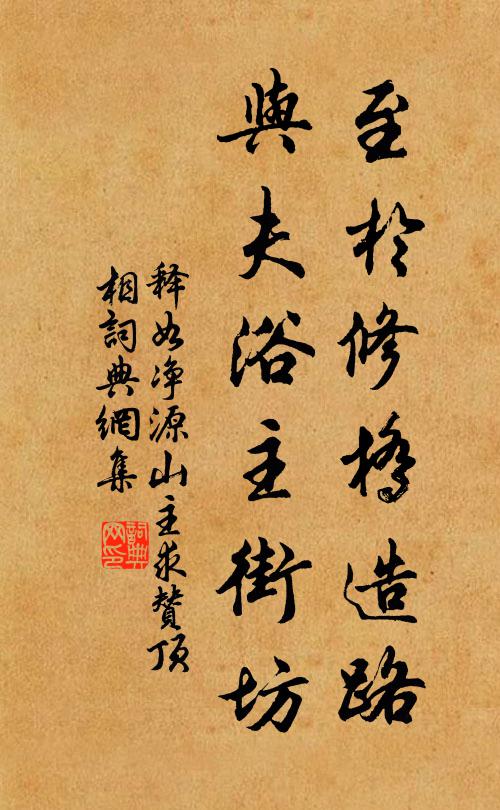 至於修橋造路
與夫浴主街坊
释如净源山主求贊頂
相詞典網集
詞典网印